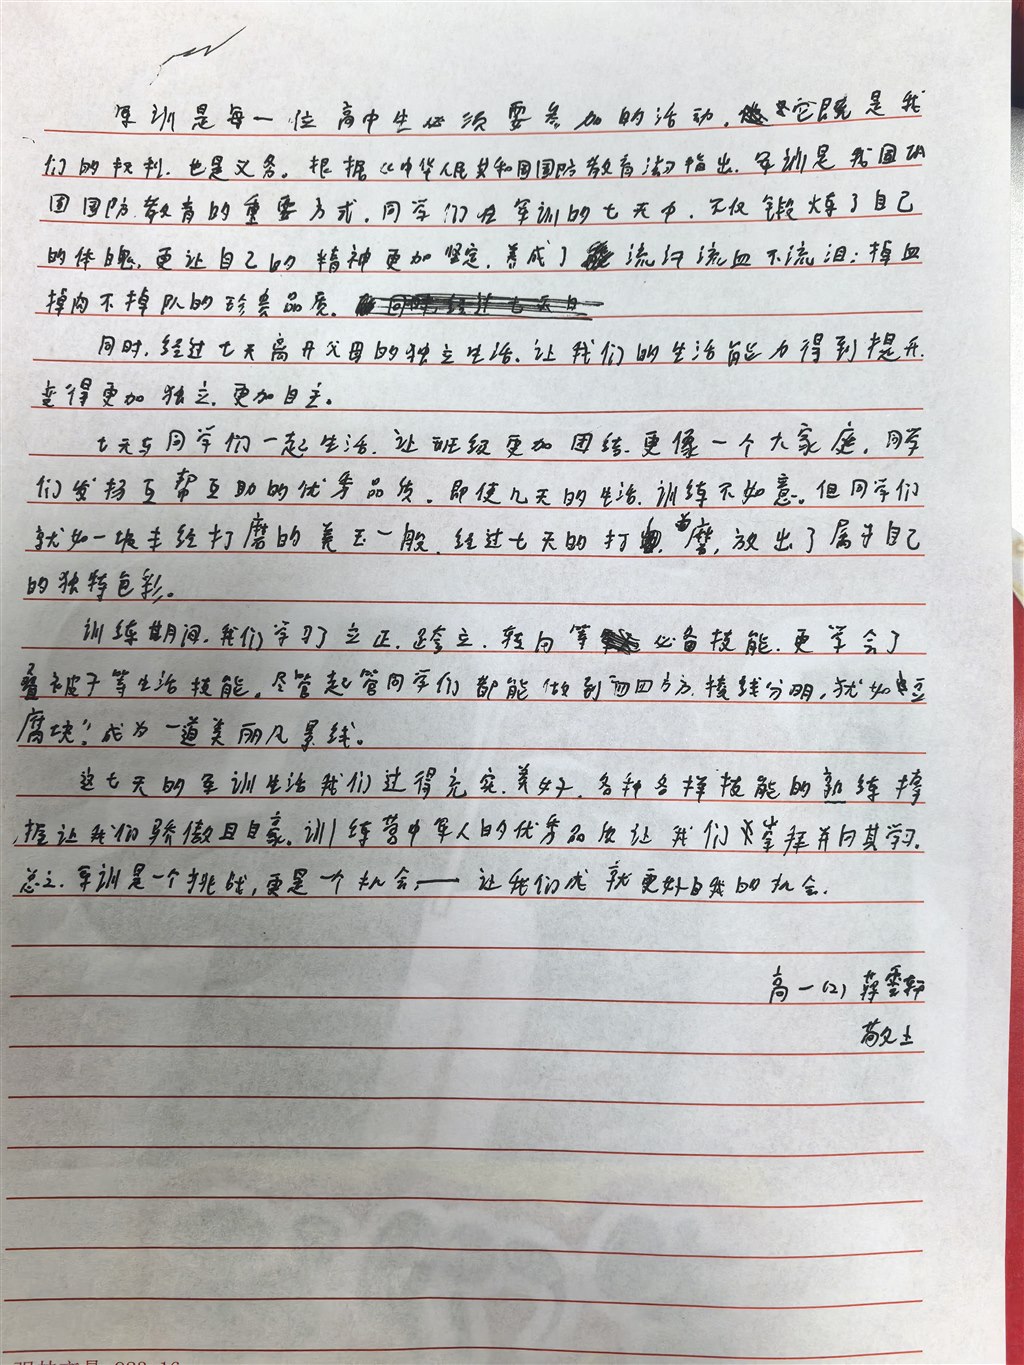 军训是每一位高中生必须要参加的活动,它既是我
们的权利,也是义务。根据《中华人民共和国国防教育法》指出,军训是我国巩
固国防教育的重要方式,同学们在军训的七天中,不仅锻炼了自己
的体魄,更让自己的精神更加坚定,养成了流汗流血不流泪;掉血
掉肉不掉队的珍贵品质。
同时,经过七天离开父母的独立生活,让我们的生活能力得到提升,
变得更加独立,更加自主。
七天与同学们一起生活,让班级更加团结,更像一个大家庭,同学
们发扬互帮互助的优秀品质。即使几天的生活,训练不如意。但同学们
就如一块未经打磨的美玉一般,经过七天的打磨,放出了属于自己
的独特色彩。
训练期间,我们学习了立正,跨立,转向等必备技能,更学会了
叠被子等生活技能。尽管起管同学们都能做到四四方方,棱线分明,犹如"豆
腐块",成为一道美丽风景线。
这七天的军训生活我们过得充实,美好,各种各样技能的熟练掌
握让我们骄傲且自豪。训练营中军人的优秀品质让我们并向其学习。
总之,军训是一个挑战,更是一个机会——让我们成就更好自我的机会。
高一(2) 蒋雯轩
敬上